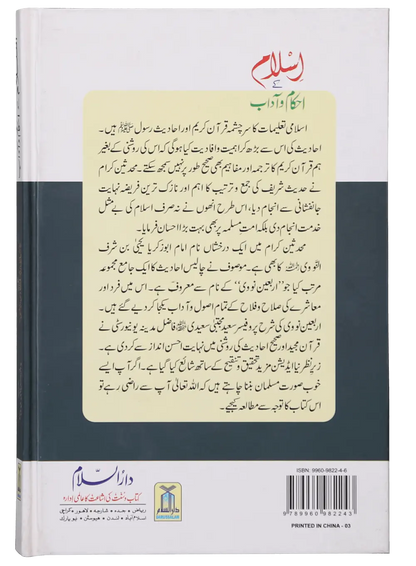 اسلام
کے
احکام و آداب
اسلامی تعلیمات کا سرچشمہ قرآن کریم اور احادیث رسول ﷺ ہیں۔
احادیث کی اس سے بڑھ کر اہمیت و افادیت کیا ہوگی کہ اس کی روشنی کے بغیر
ہم قرآن کریم کا ترجمہ اور مفاہیم بھی صحیح طور پر نہیں سمجھ سکتے۔ محدثین کرام
نے حدیث شریف کی جمع و ترتیب کا اہم اور نازک ترین فریضہ نہایت
جانفشانی سے انجام دیا، اس طرح انھوں نے نہ صرف اسلام کی بے مثل
خدمت انجام دی بلکہ امتِ مسلمہ پر بھی بہت بڑا احسان فرمایا۔
محدثین کرام میں ایک درخشاں نام امام ابوزکریا یحییٰ بن شرف
النووی رحمہ اللہ کا بھی ہے۔ موصوف نے چالیس احادیث کا ایک جامع مجموعہ
مرتب کیا جو "اربعین نووی" کے نام سے معروف ہے۔ اس میں فرد اور
معاشرے کی صلاح و فلاح کے تمام اصول و آداب یکجا کر دیے گئے ہیں۔
اربعین نووی کی شرح پروفیسر سعید مجتبیٰ سعیدی فاضل مدینہ یونیورسٹی نے
قرآن مجید اور صحیح احادیث کی روشنی میں نہایت احسن انداز سے کر دی ہے۔
زیر نظر نیا ایڈیشن مزید تحقیق و تنقیح کے ساتھ شائع کیا گیا ہے۔ اگر آپ ایسے
خوب صورت مسلمان بننا چاہتے ہیں کہ اللہ تعالیٰ آپ سے راضی رہے تو
اس کتاب کا توجہ سے مطالعہ کیجیے۔
دارالسلام
کتاب و سنت کی اشاعت کا عالمی ادارہ
ریاض • جدہ • شارجہ • لاہور • کراچی
اسلام آباد • لندن • ہیوسٹن • نیو یارک
دارالسلام
DARUSSALAM
ISBN: 9960-9822-4-6
9 789960 982243
PRINTED IN CHINA - 03